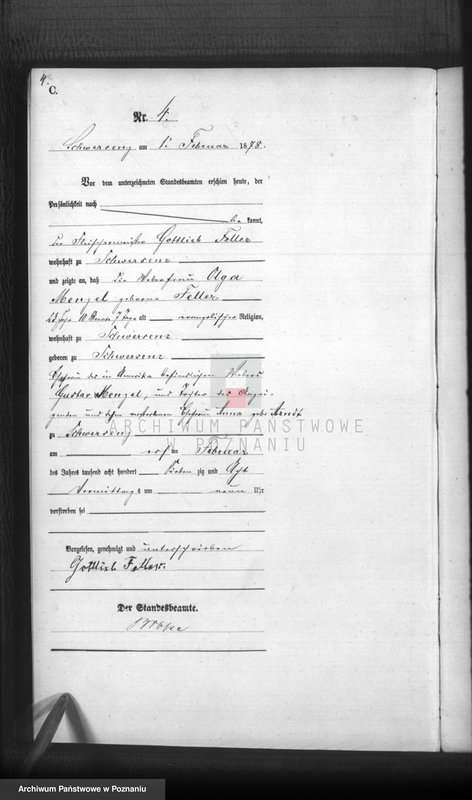 4.
C.
Nr. 4.
Schwersenz am 1. Februar 1878.
Vor dem unterzeichneten Standesbeamten erschien heute, der
Persönlichkeit nach
be kannt,
der Fleischermeister Gottlieb Feller
wohnhaft zu Schwersenz
und zeigte an, daß die Weberfrau Olga
Menzel geborne Feller
Jahre 10 Monate 7 Tage alt evangelischer Religion,
wohnhaft zu Schwersenz
geboren zu Schwersenz
Ehefrau des in Amerika befindlichen Webers
Gustav Menzel, und Tochter des Anzei-
genden und dessen verstorbenen Ehefrau Anna geb. Arndt
zu Schwersenz
am ersten Februar
des Jahres tausend acht hundert sieben zig und acht
Vormittags um neun Uhr
verstorben sei
Vorgelesen, genehmigt und unterschrieben
Gottlieb Feller.
Der Standesbeamte.
ARCHIWUM PAŃSTWOWE
W POZNANIU
Archiwum Państwowe w Poznaniu